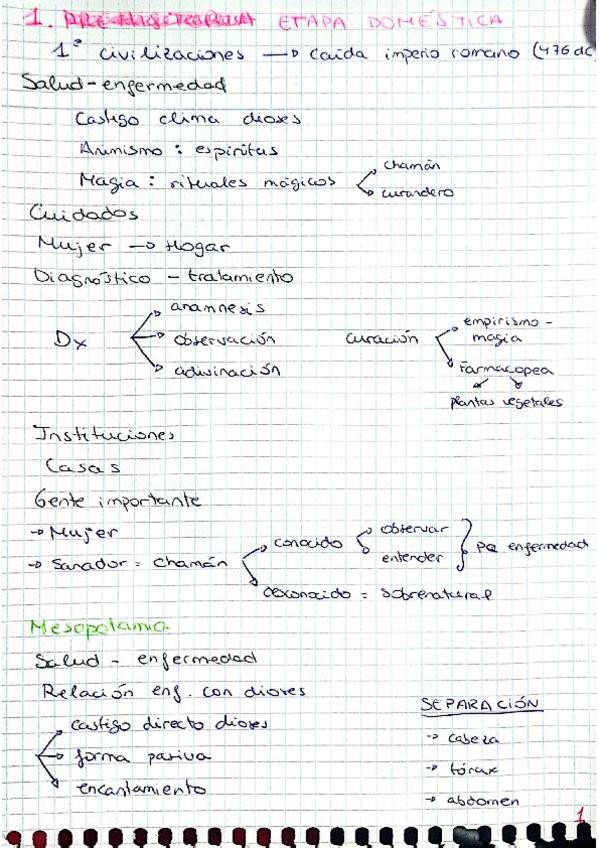 1. ETAPA DOMÉSTICA
1º civilizaciones → Caída imperio romano (476 dc
Salud-enfermedad
Castigo clima dioses
Animismo : espíritus
Magia : rituales mágicos
chamán
curandero
Cuidados
Mujer → Hogar
Diagnóstico - tratamiento
Dx
anamnesis
observación
adivinación
curación
empirismo - magia
farmacopea
plantas vegetales
Instituciones
Casas
Gente importante
→ Mujer
→ Sanador = chamán
conocido
observar
entender
pq enfermedad
desconocido = sobrenatural
Mesopotamia
Salud - enfermedad
Relación enf. con dioses
castigo directo dioses
forma pasiva
encantamiento
SEPARACIÓN
→ cabeza
→ tórax
→ abdomen
1